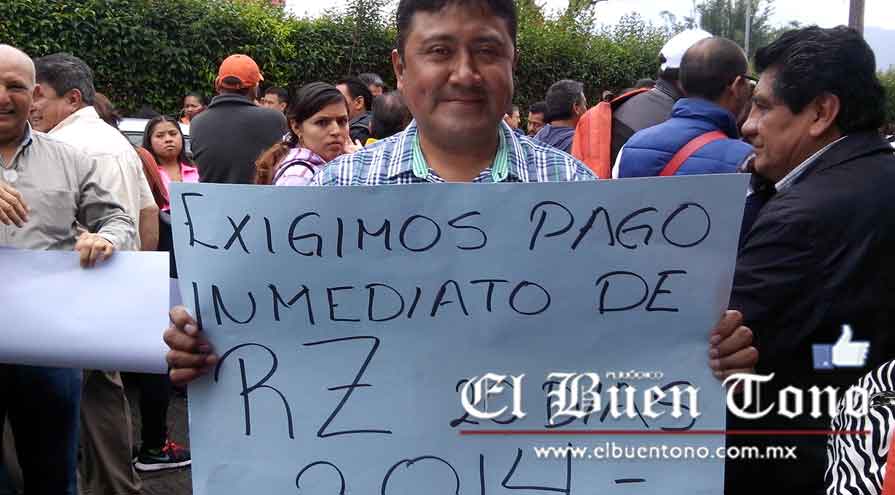 EXIGIMOS PAGO
INMEDIATO DE
RZ 20 DIAS
2014 -
PERIÓDICO
El Buen Tono
www.elbuentono.com.mx